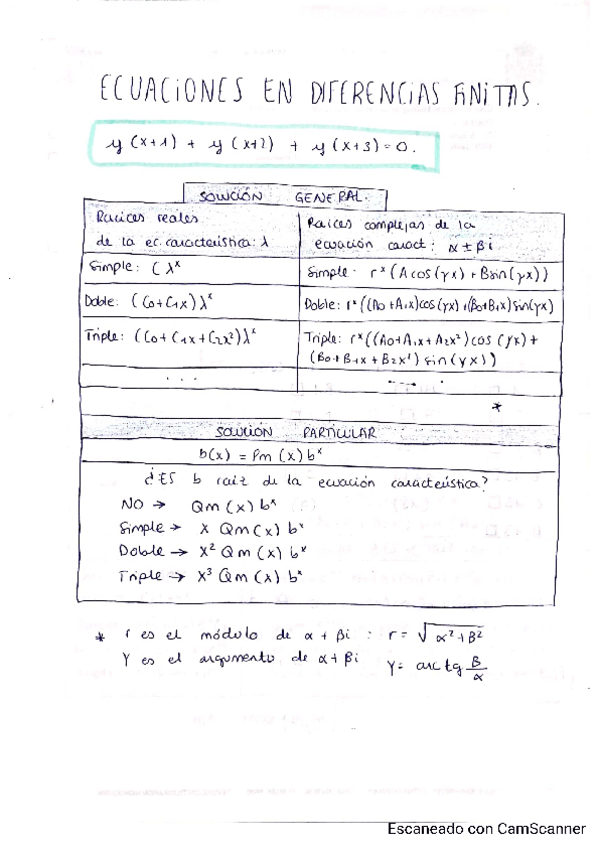 ECUACIONES EN DIFERENCIAS FINITAS.
y(x+1) + y(x+2) + y(x+3) = 0.
SOLUCIÓN GENERAL.
Raices reales
de la ec. caracteristica: λ
Raices complejas de la
ecuación caract: α ± βi
Simple: C λˣ
Simple: rˣ (A cos(γx) + B sin(γx))
Doble: (C₀+C₁x) λˣ
Doble: rˣ((A₀+A₁x)cos(γx)+(B₀+B₁x)sin(γx)
Triple: (C₀+C₁x+C₂x²)λˣ
Triple: rˣ((A₀+A₁x+A₂x²)cos(γx)+
(B₀+B₁x+B₂x²) sin(γx))
...
....
*
SOLUCIÓN PARTICULAR
b(x) = Pm(x) bˣ
¿ES b raiz de la ecuación caracteristica?
NO → Qm(x) bˣ
Simple → x Qm(x) bˣ
Doble → x² Qm(x) bˣ
Triple → x³ Qm(x) bˣ
* r es el módulo de α + βi : r = √α²+β²
γ es el argumento de α + βi γ = arctg β/α
Escaneado con CamScanner